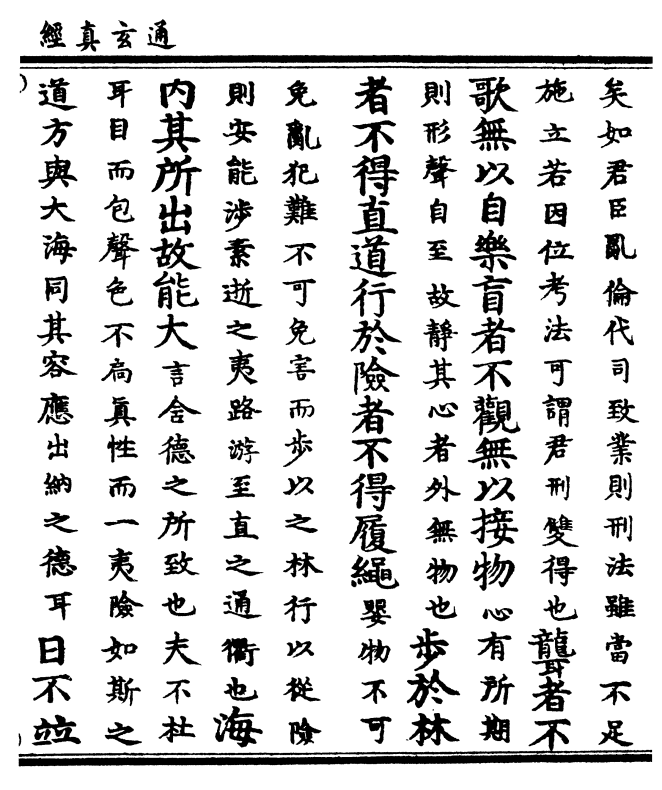 通玄真經
矣如君臣亂倫代司致業則刑法雖當不足
施立若因位考法可謂君刑雙得也聾者不
歌無以自樂盲者不觀無以接物心有所期
則形聲自至故靜其心者外無物也步於林
者不得直道行於險者不得履繩嬰物不可
免亂犯難不可免害而步以之林行以從險
則安能涉素逝之夷路游至直之通衢也海
內其所出故能大言含德之所致也夫不杜
耳目而包聲色不扃眞性而一夷險如斯之
道方與大海同其容應出納之德耳日不竝